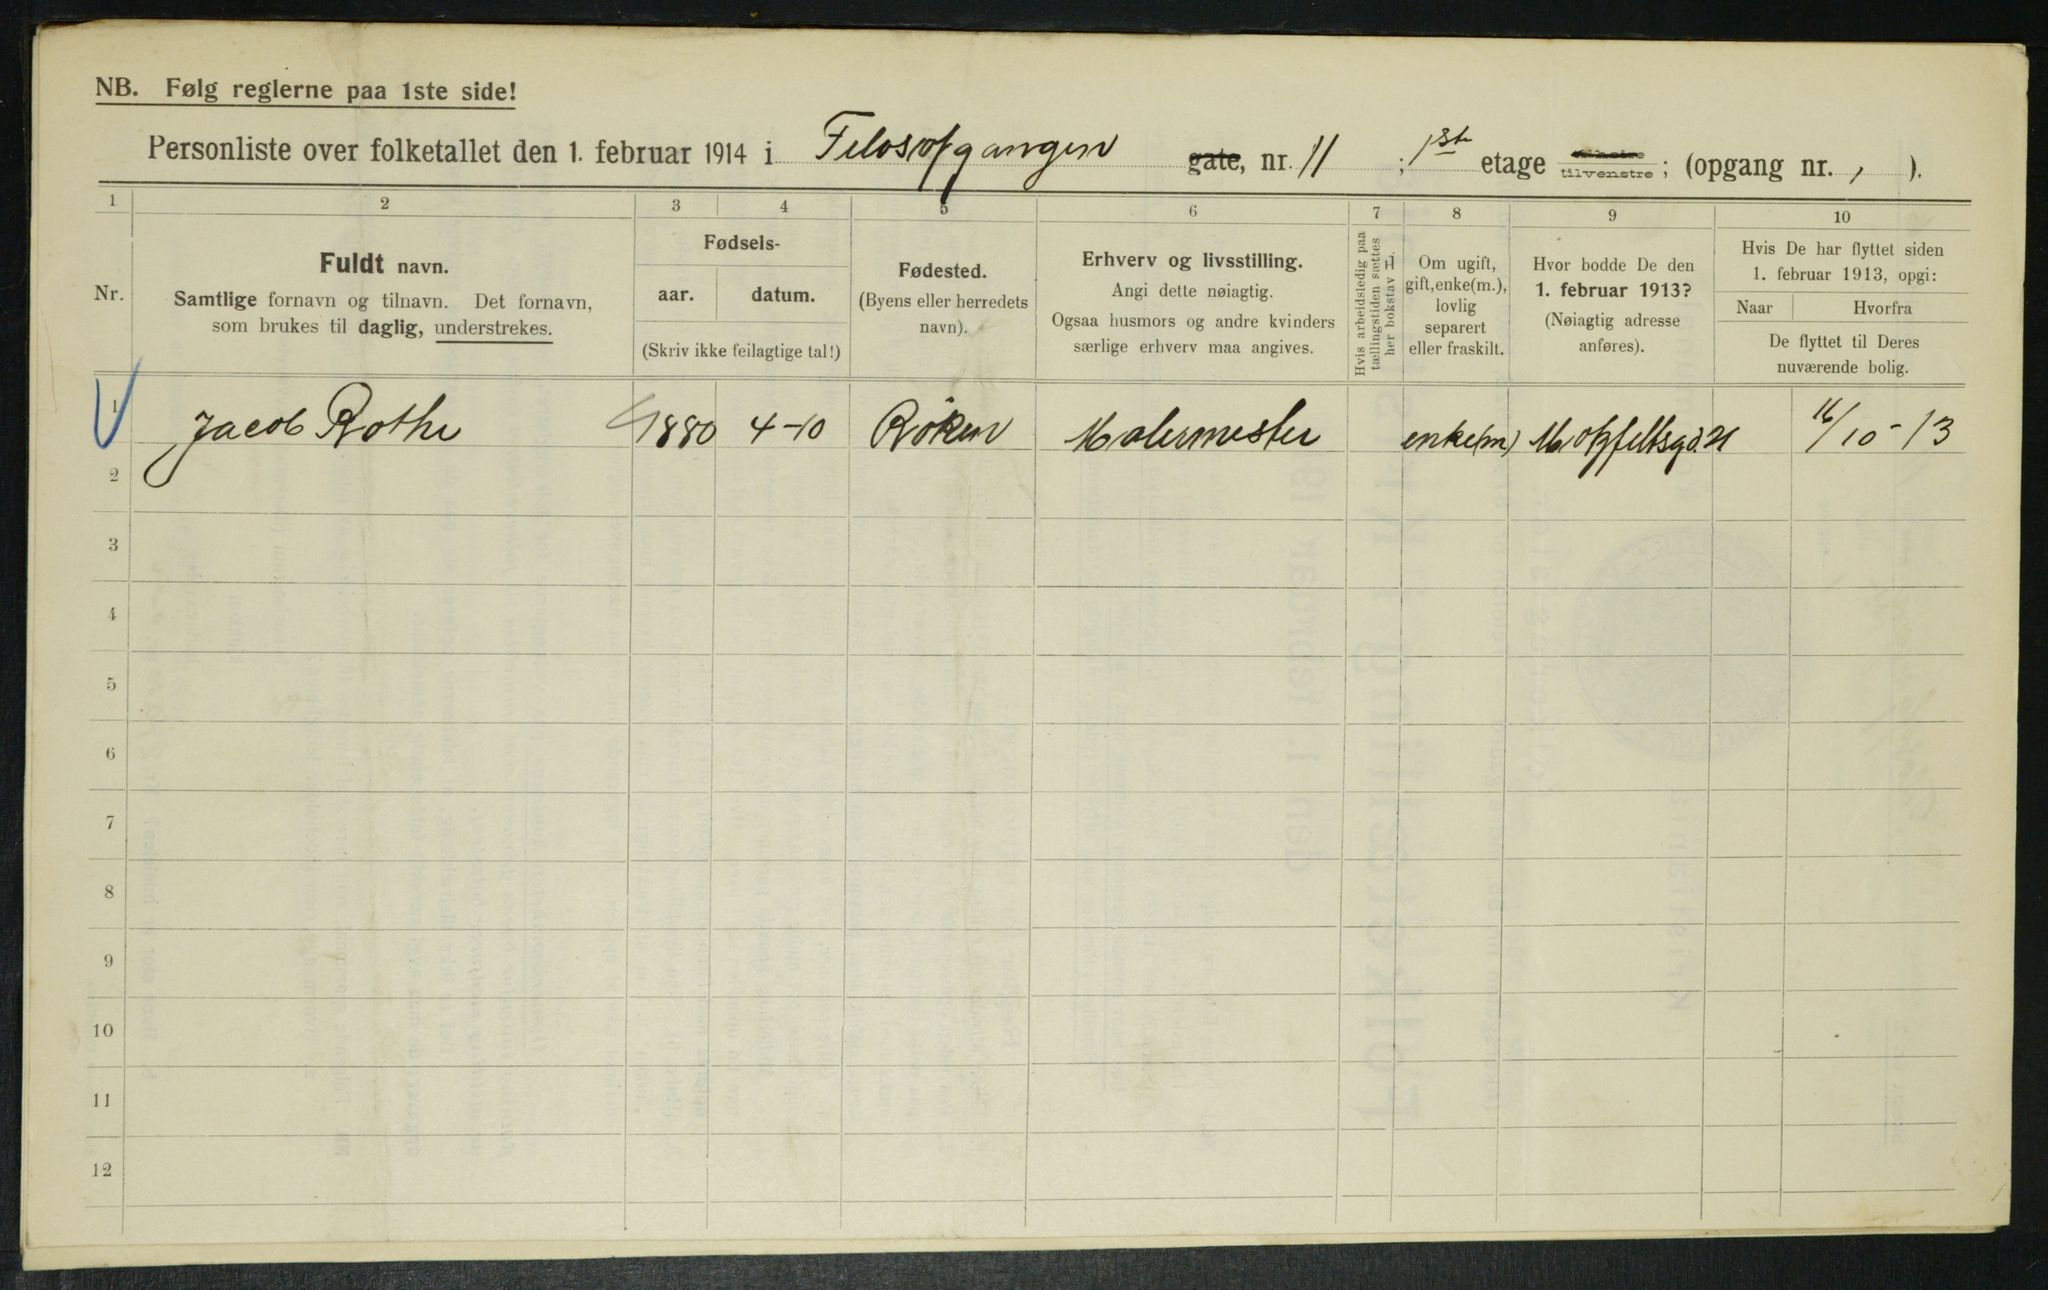 NB. Følg reglerne paa 1ste side!
Personliste over folketallet den 1. februar 1914 i Filosofgangen gate, nr. 11 ; 1ste etage tilvenstre ; (opgang nr. , ).
1 2 3 4 5 6 7 8 9 10
Nr.
Fuldt navn.
Samtlige fornavn og tilnavn. Det fornavn,
som brukes til daglig, understrekes.
Fødsels-
aar. datum.
(Skriv ikke feilagtige tal!)
Fødested.
(Byens eller herredets
navn).
Erhverv og livsstilling.
Angi dette nøiagtig.
Ogsaa husmors og andre kvinders
særlige erhverv maa angives.
Hvis arbeidsledig paa
tællingstiden sættes
her bokstav L.
Om ugift,
gift, enke(m.),
lovlig
separert
eller fraskilt.
Hvor bodde De den
1. februar 1913?
(Nøiagtig adresse
anføres).
Hvis De har flyttet siden
1. februar 1913, opgi:
Naar Hvorfra
De flyttet til Deres
nuværende bolig.
1 Jacob Rothe 1880 4-10 Røken Malermester enke(m) 16/10-13
2
3
4
5
6
7
8
9
10
11
12